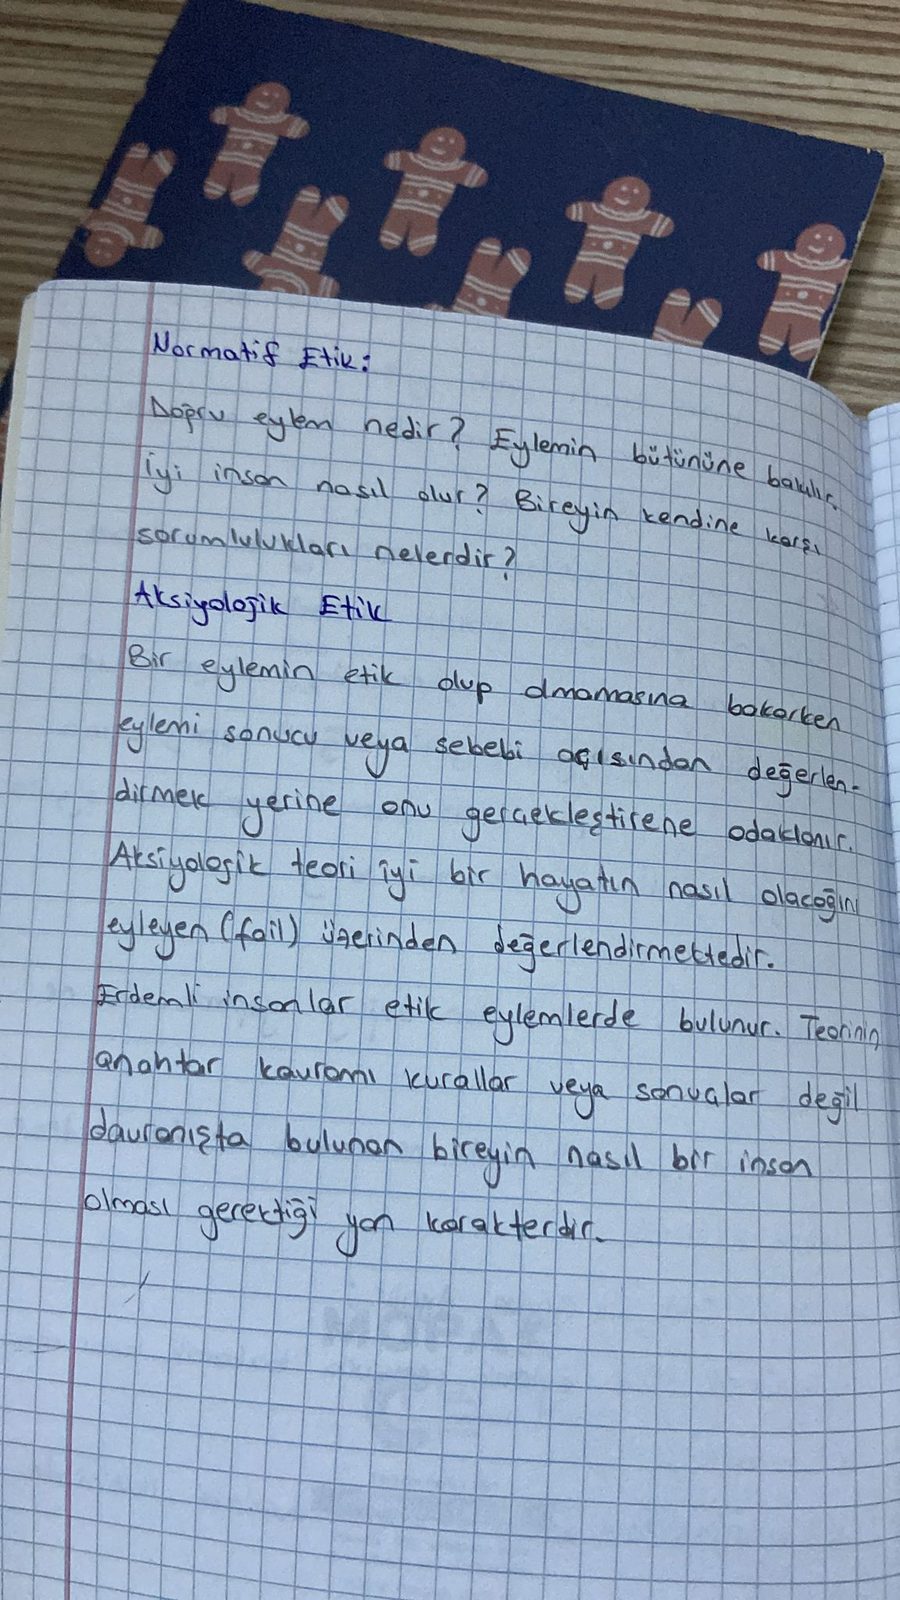 Normatif Etik:
Doğru eylem nedir? Eylemin bütününe bakılır.
İyi insan nasıl olur? Bireyin kendine karşı
sorumlulukları nelerdir?
Aksiyolojik Etik
Bir eylemin etik olup olmamasına bakarken
eylemi sonucu veya sebebi açısından değerlen-
dirmek yerine onu gerçekleştirene odaklanır.
Aksiyolojik teori iyi bir hayatın nasıl olacağını
eyleyen (fail) üzerinden değerlendirmektedir.
Erdemli insanlar etik eylemlerde bulunur. Teorinin
anahtar kavramı kurallar veya sonuçlar değil
davranışta bulunan bireyin nasıl bir insan
olması gerektiği yan karakterdir.